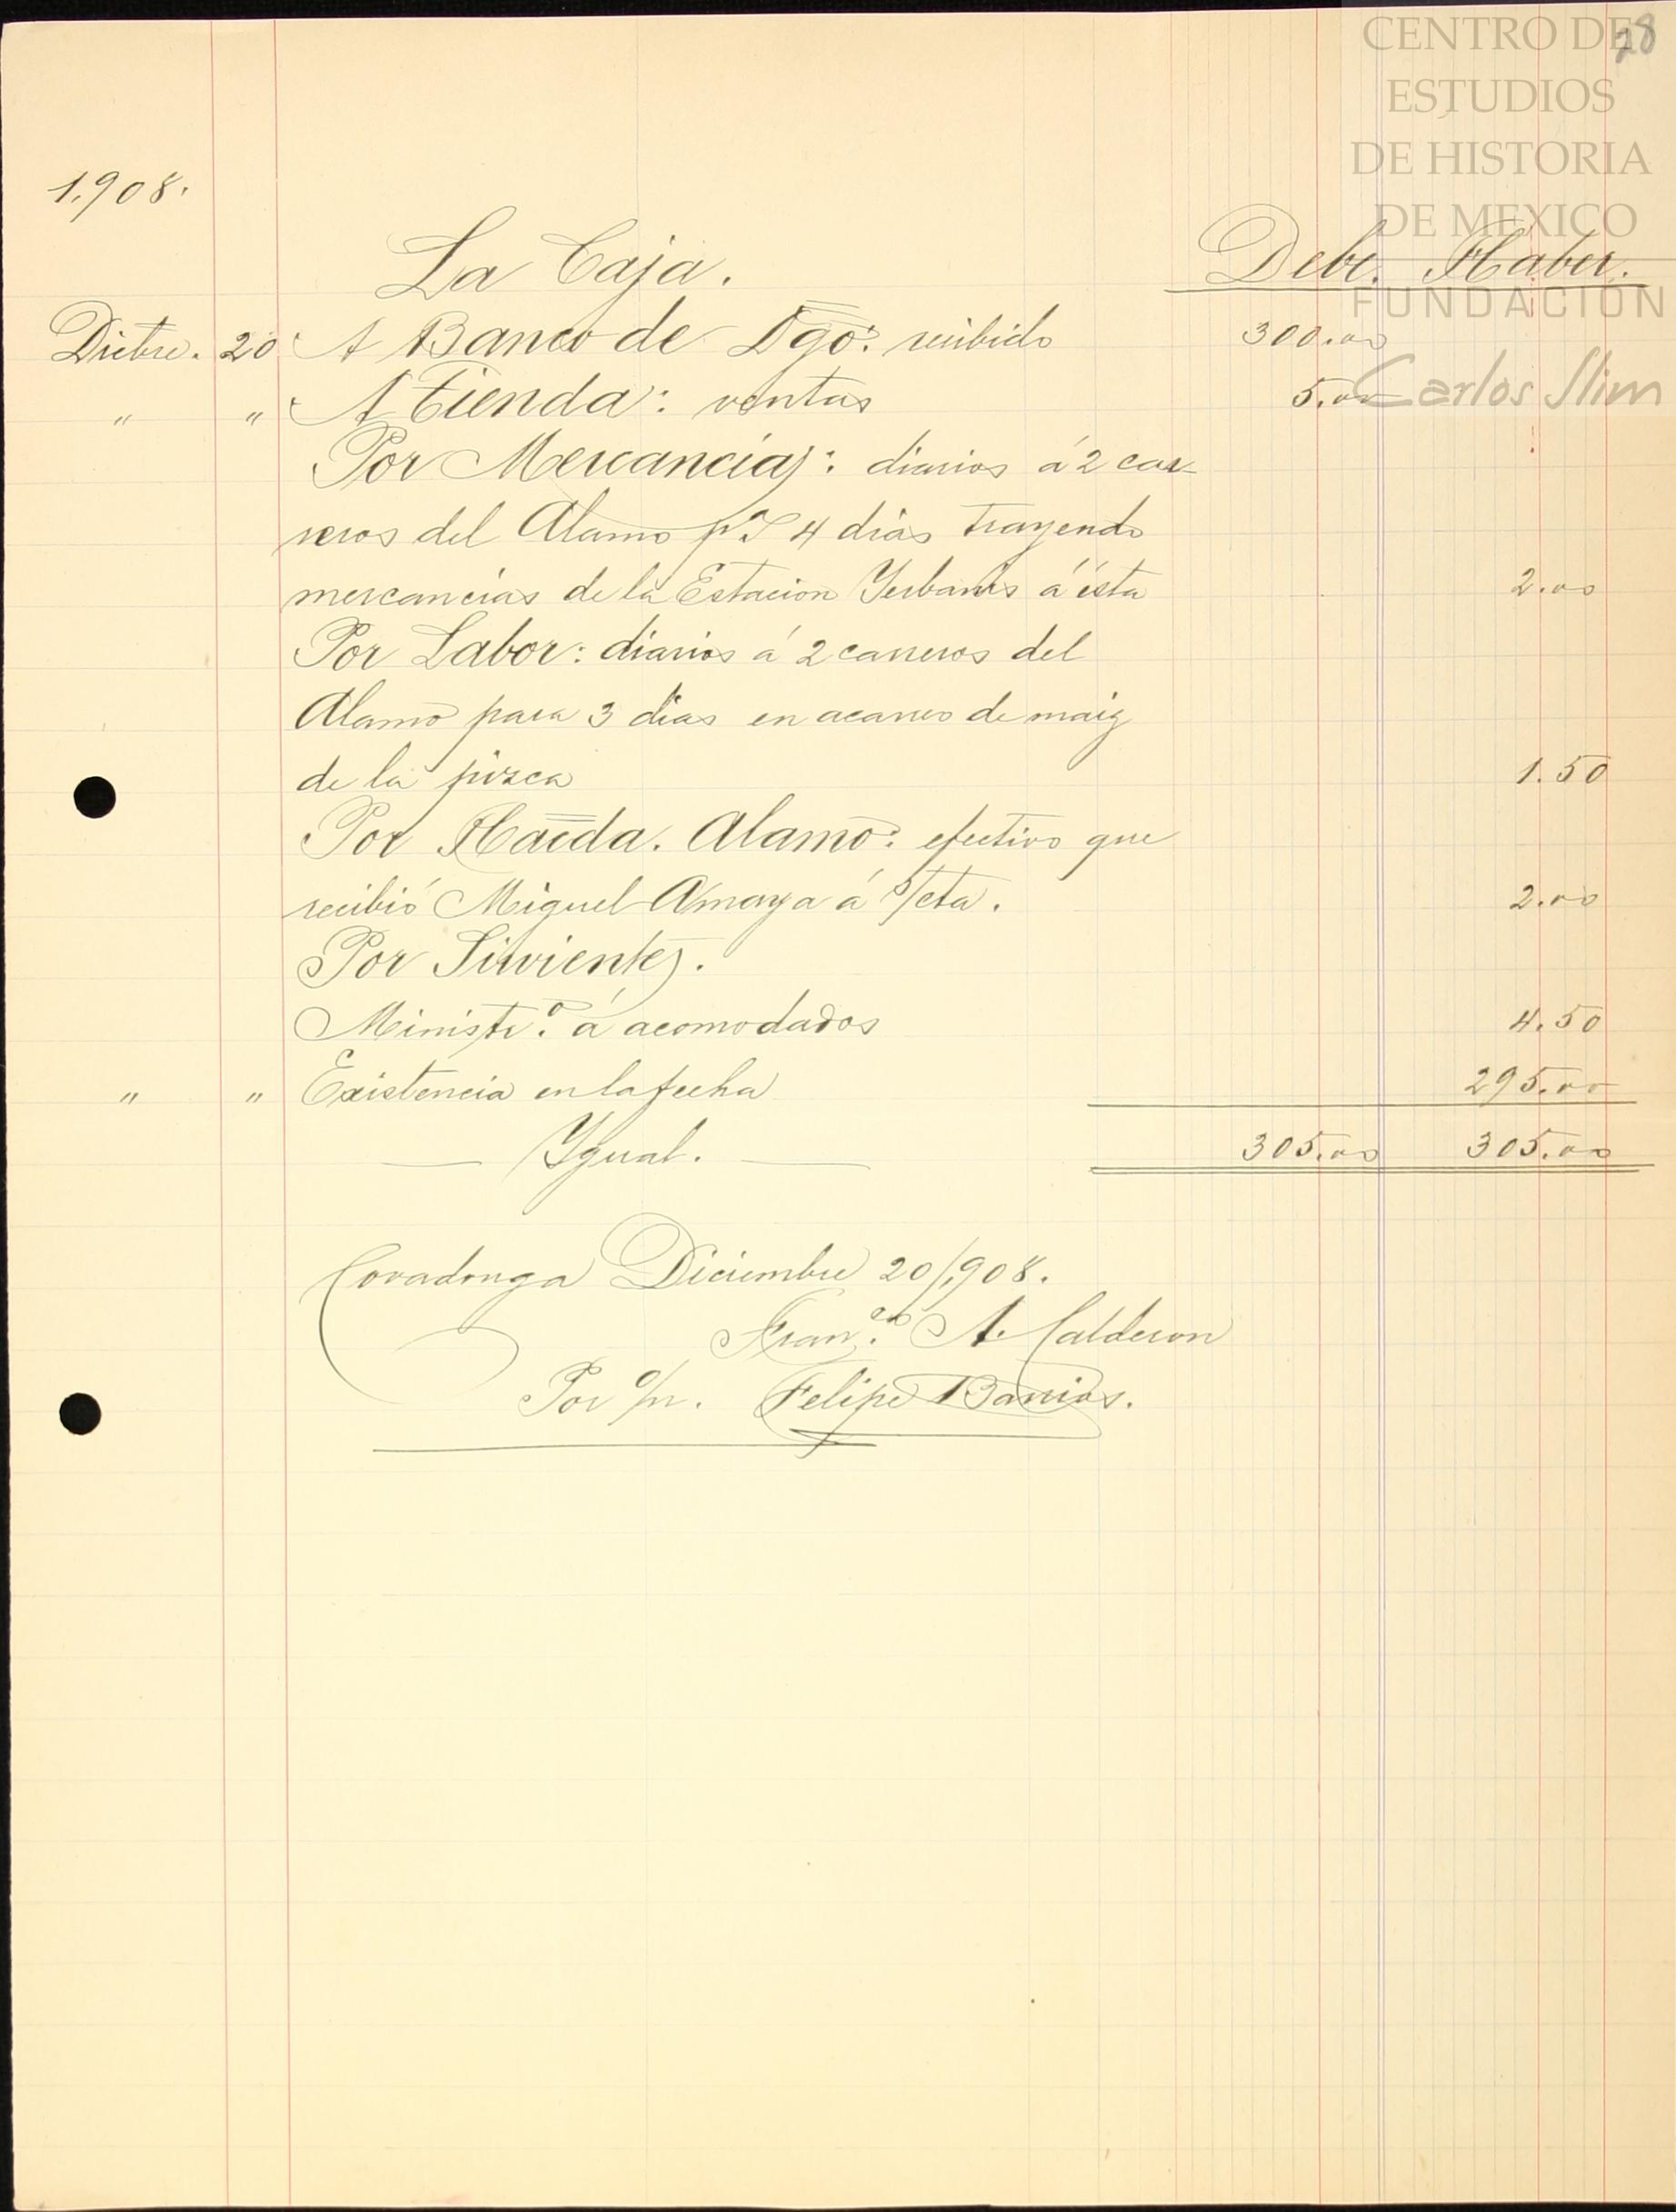 28
CENTRO DE
ESTUDIOS
DE HISTORIA
DE MEXICO
FUNDACIÓN
Carlos Slim
1.908.
La Caja. Debe. Haber.
Dicbre. 20 A Banco de Dgo: recibido 300.00
" " A Tienda: ventas 5.00
Por Mercancias: diarios á 2 car-
reros del Alamo pª 4 dias trayendo
mercancias de la Estacion Yerbanis á ésta 2.00
Por Labor: diarios á 2 carreros del
Alamo para 3 dias en acarreo de maiz
de la pizca 1.50
Por Hacda. Alamo: efectivo que
recibió Miguel Amaya á s/cta. 2.00
Por Sirvientes.
Ministr.º á acomodados 4.50
" " Existencia en la fecha 295.00
Ygual. 305.00 305.00
Covadonga Diciembre 20/1,908.
Fran.co A. Calderon
Por o/n. Felipe Barrios.